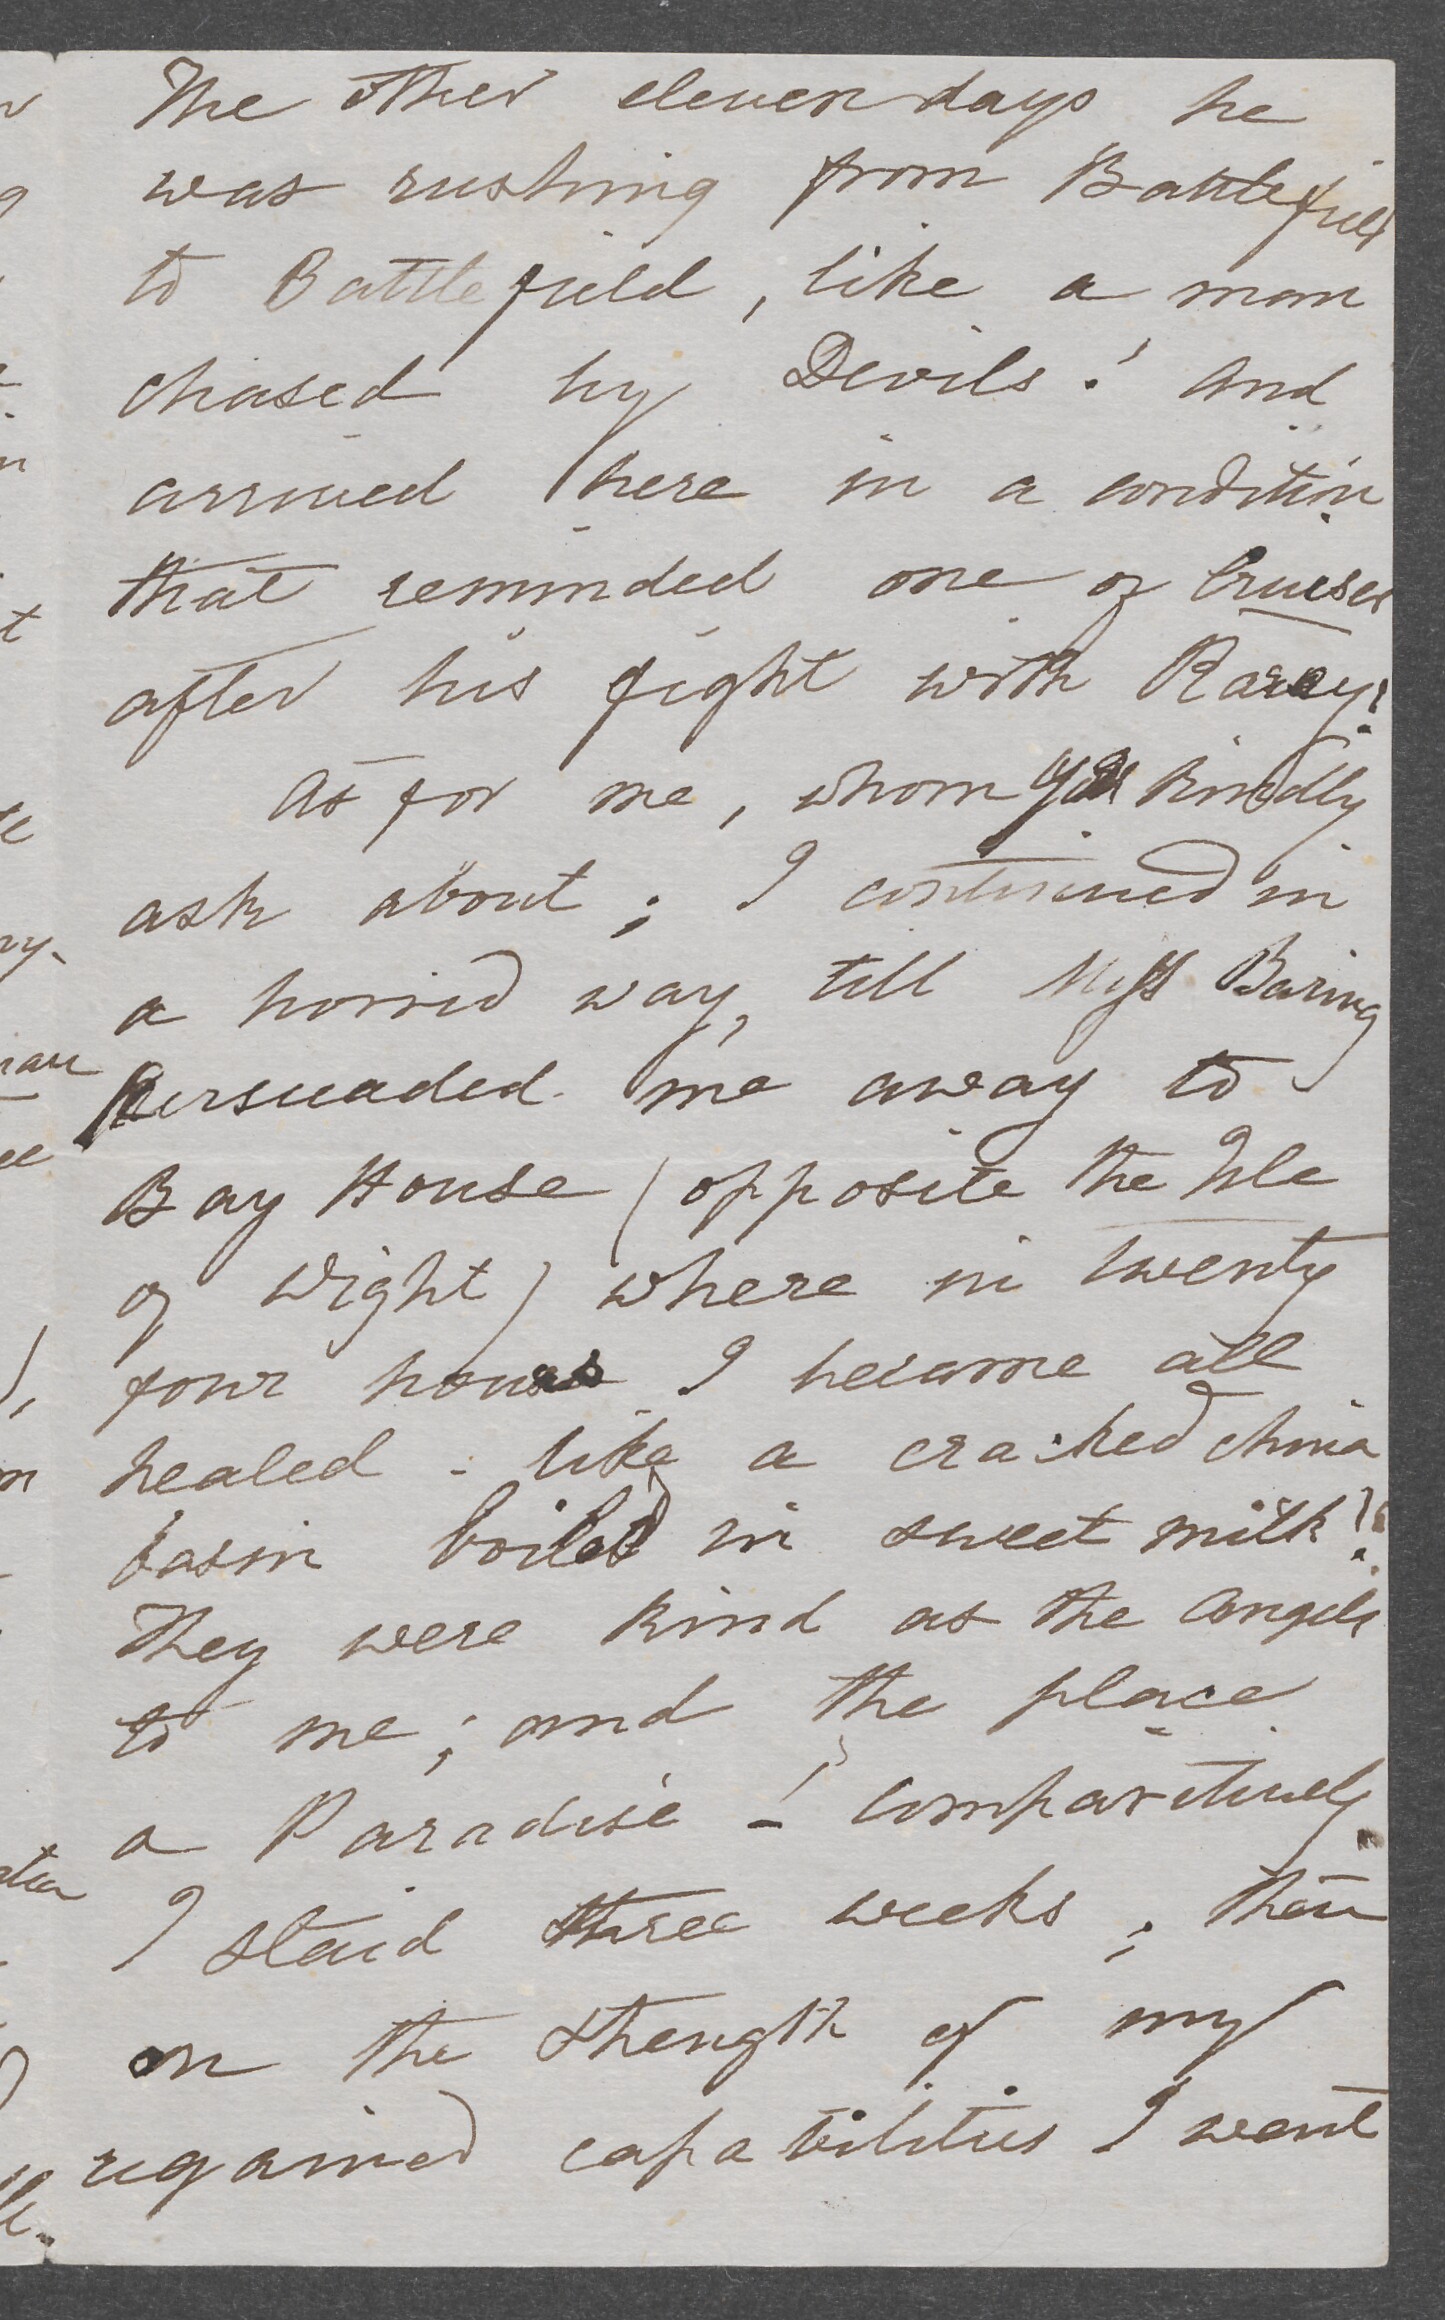 The other eleven days he
was rushing from Battlefield
to Battlefield, like a man
chased by Devils! and
arrived here in a condition
that reminded one of Cruiser
after his fight with Rarey!
As for me, whom you kindly
ask about; I continued in
a horrid way, till Miss Baring
persuaded me away to
Bay House (opposite the Isle
of Wight) where in twenty
four hours I became all
healed - like a cracked china
basin boiled in sweet milk!
They were kind as the Angels
to me; and the place
a Paradise! Comparitively
I staid three weeks; then
on the strength of my
regained capabilities I went